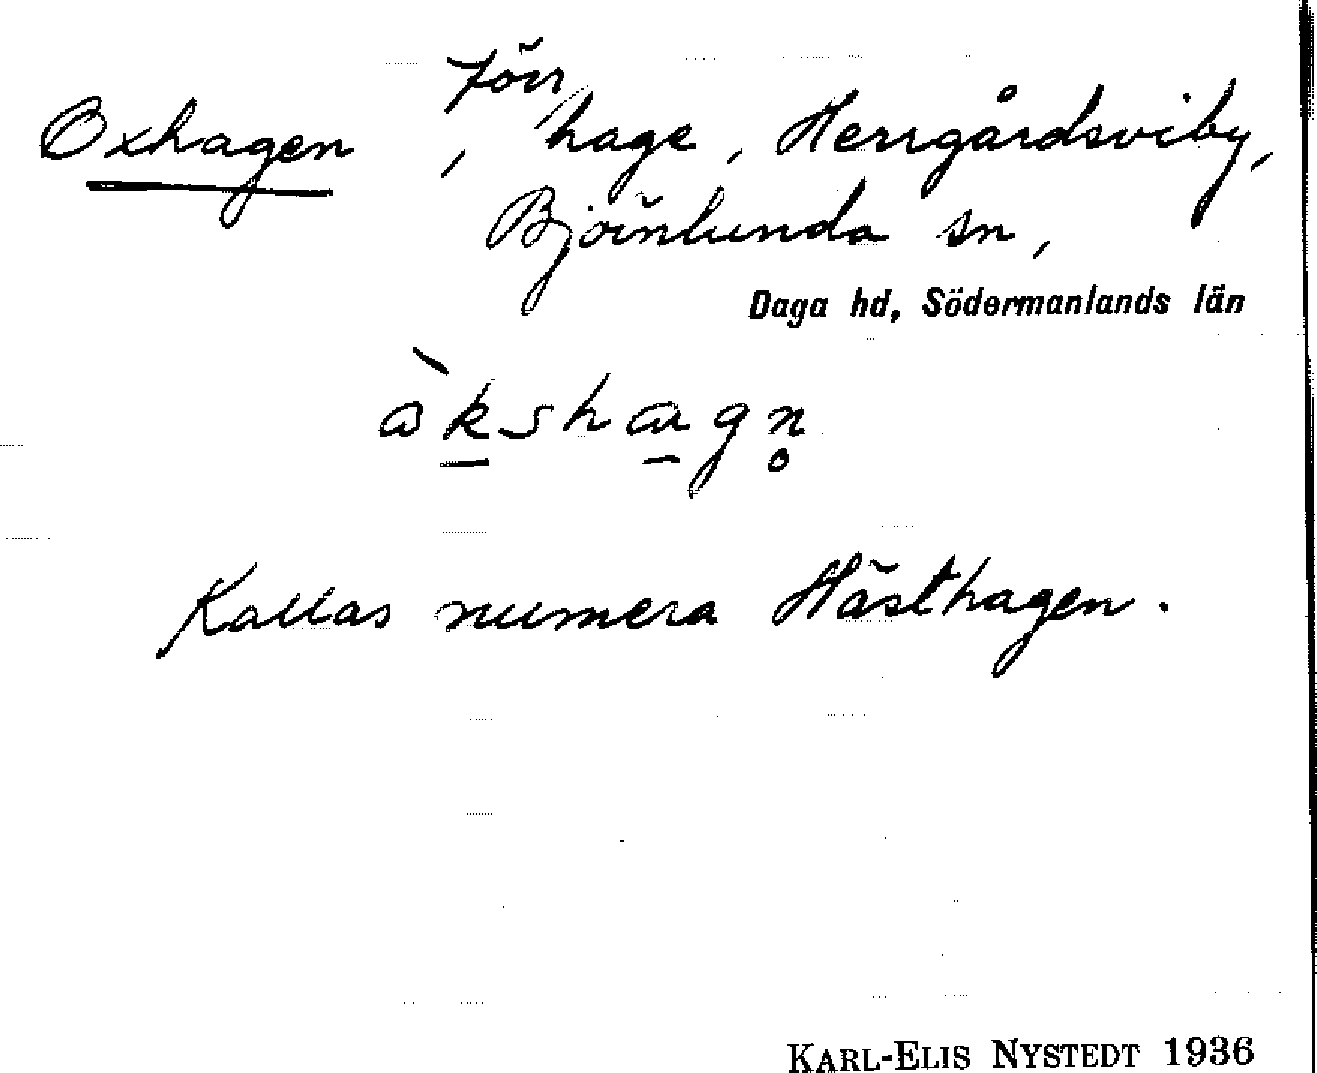 Oxhagen, förr hage, Herrgårdsviby,
Björnlunda sn,
Daga hd, Södermanlands län
àkshagn̥
Kallas numera Hästhagen.
KARL-ELIS NYSTEDT 1936